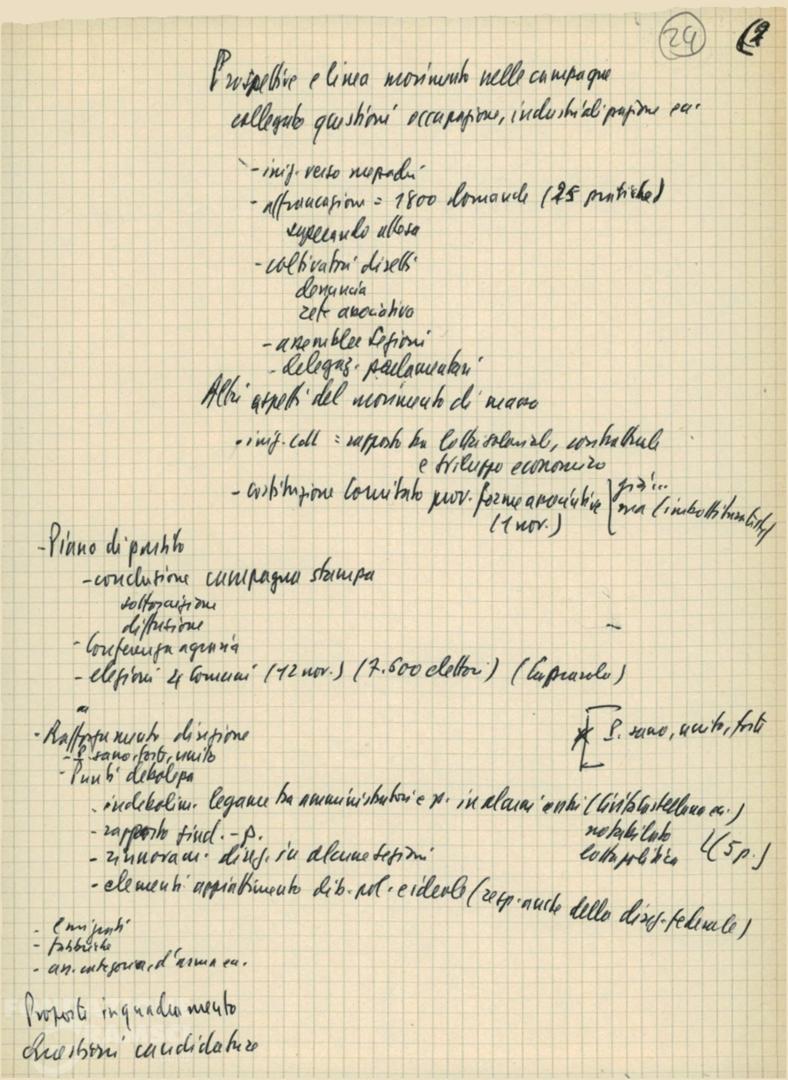 24
(2
Prospettive e linea movimento nelle campagne
collegato questioni occupazione, industrializzazione ecc.
- iniz. verso mezzadri
- affrancazione = 1800 domande (25 pratiche)
superando attesa
- coltivatori diretti
denuncia
rete associativo
- assemblee Sezioni
- delegaz. parlamentari
Altri aspetti del movimento di massa
- iniz. CdL = rapporto tra lotta salariale, contrattuale
e sviluppo economico
- costituzione Comitato prov. forme associative
(1 nov.)
già...
ma
- Piano di partito
- conclusione campagna stampa
sottoscrizione
diffusione
- Conferenza agraria
- elezioni 4 Comuni (12 nov.) (7.600 elettori) (Caprarola)
- Rafforzamento direzione
- P. sano, forte, unito
- Punti debolezza
[ P. sano, unito, forte
. indebolim. legame tra amministratori e p. in alcuni centri (Civitacastellana ecc.)
- rapporto sind. - p.
notabilato
- rinnovam. direz. in alcune sezioni
lotta politica
(5 p.)
- elementi appiattimento dib. pol. e ideale (resp. anche della direz. federale)
- emigrati
- fabbriche
- ass. categoria, d'arma ecc.
Proposte inquadramento
Questioni candidature